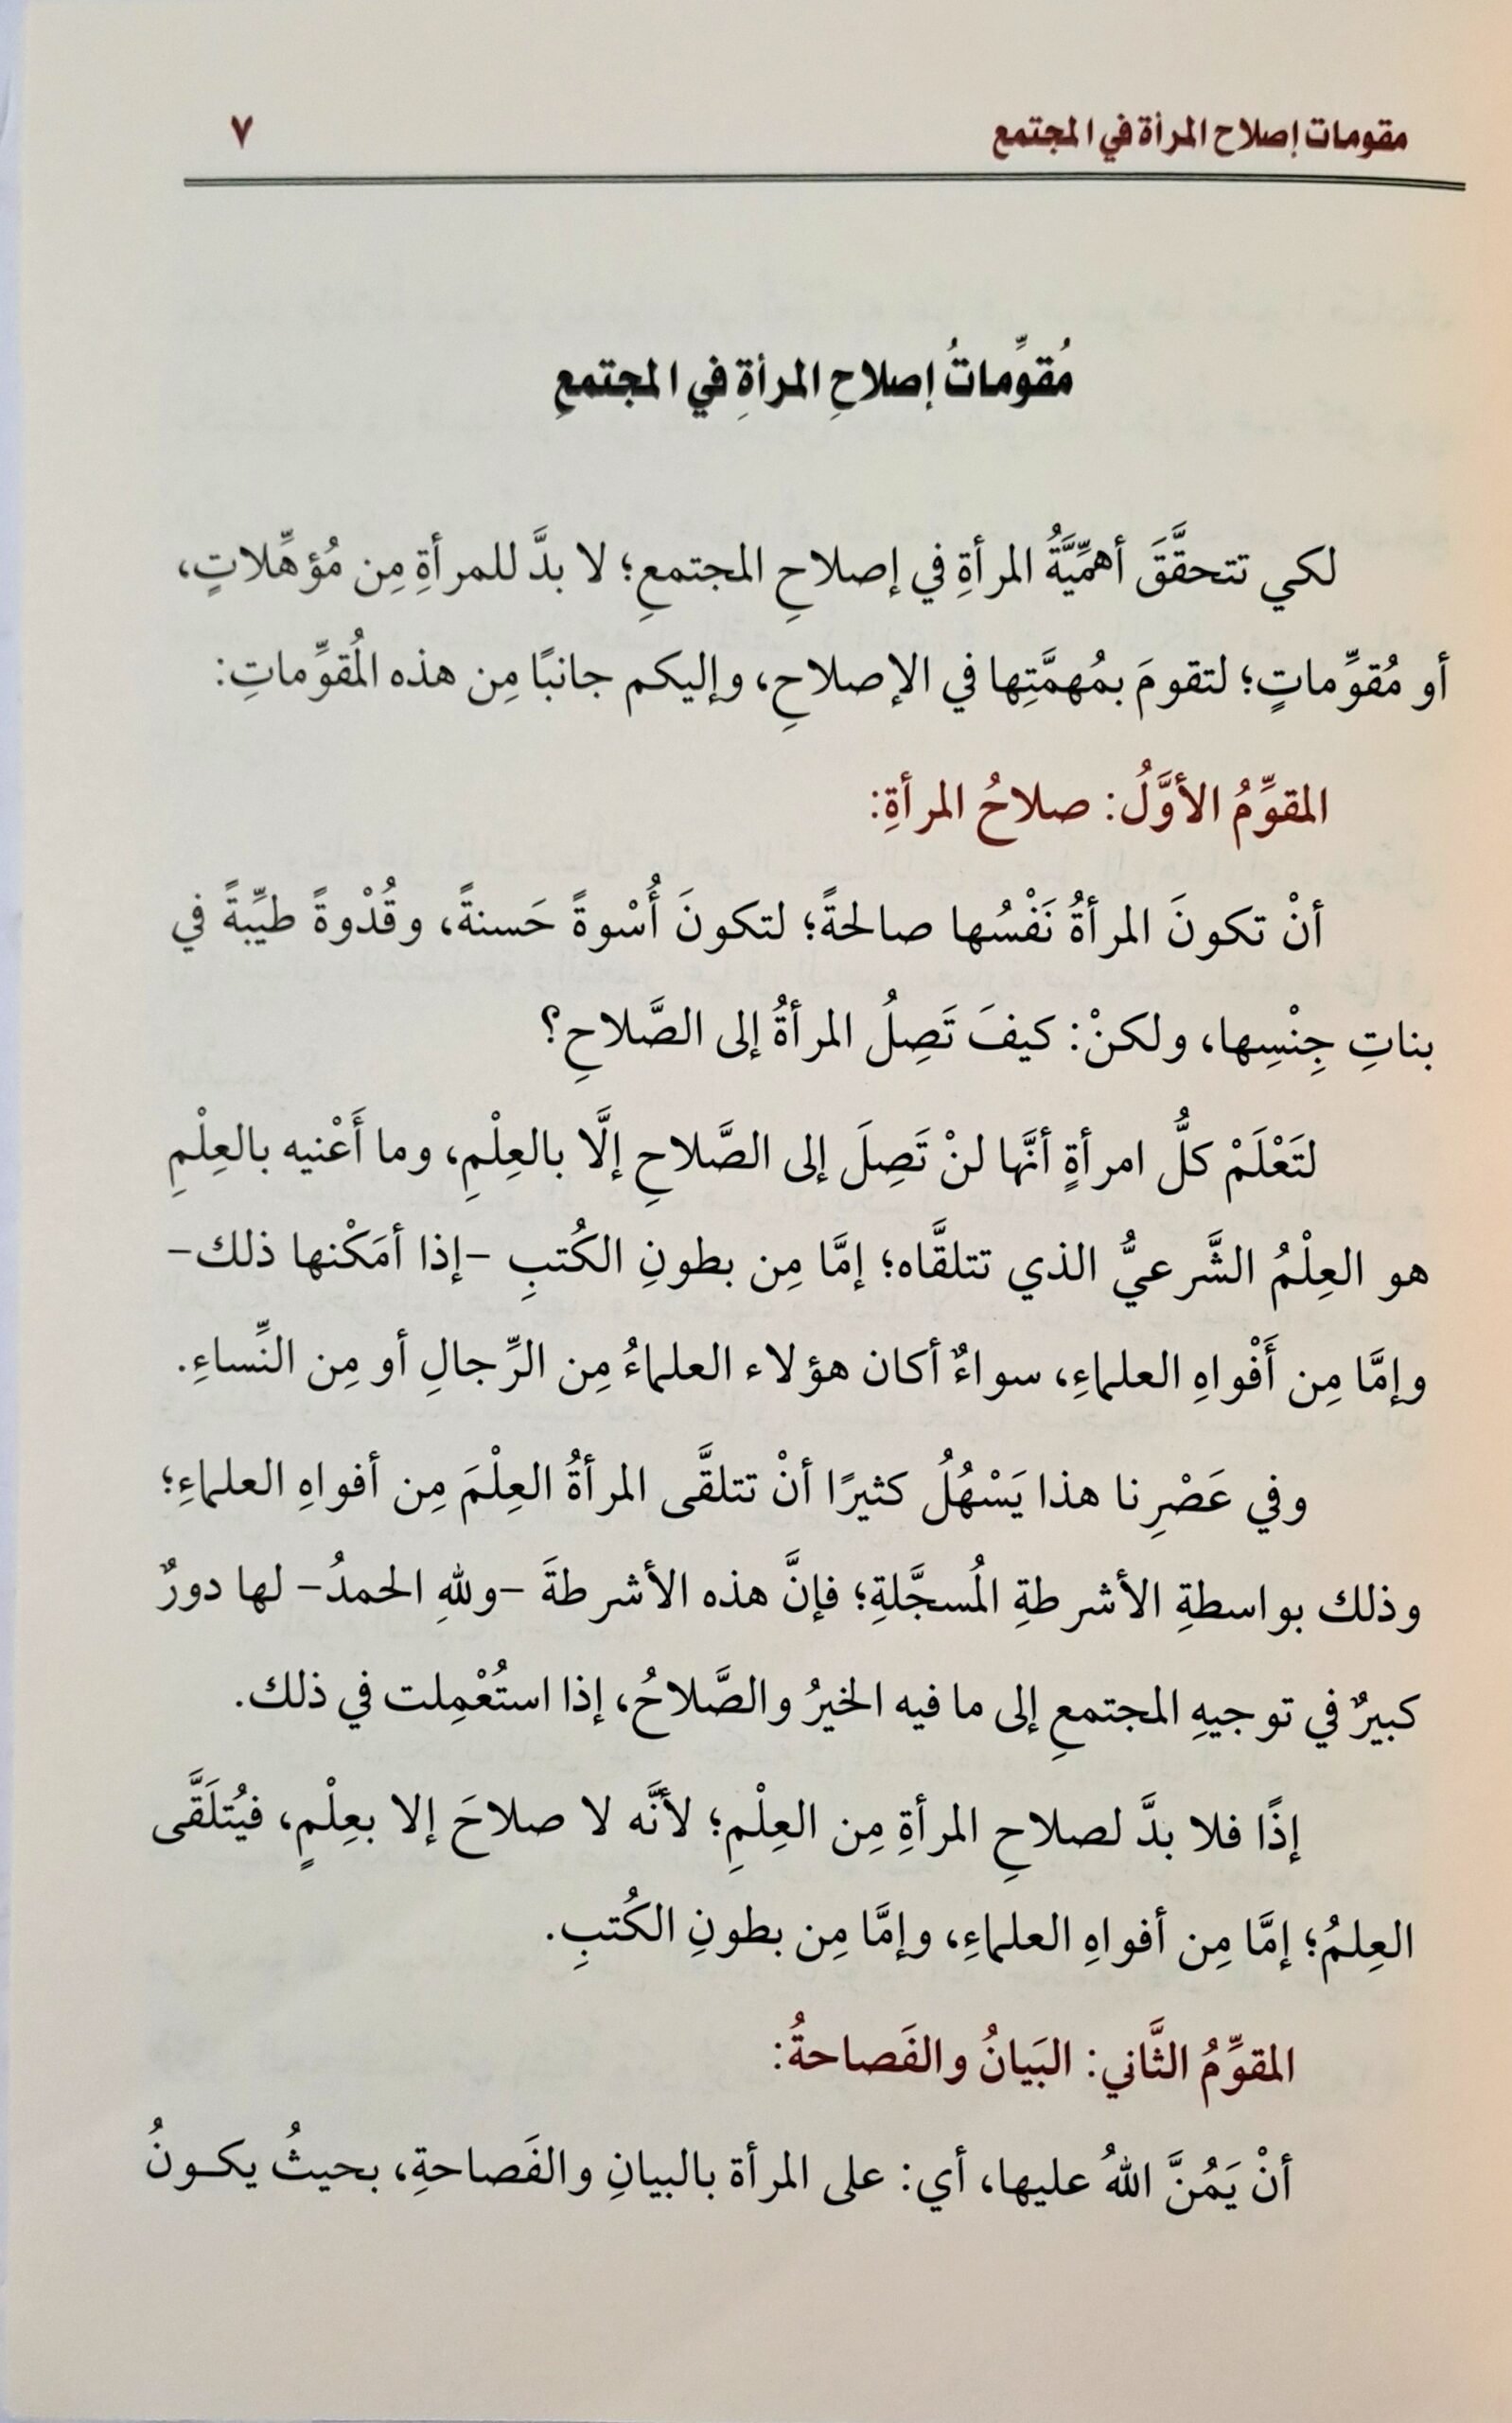 مقومات إصلاح المرأة في المجتمع ٧
مُقوِّماتُ إصلاحِ المرأةِ في المجتمعِ
لكي تتحقَّقَ أهمِّيَّةُ المرأةِ في إصلاحِ المجتمعِ؛ لا بدَّ للمرأةِ مِن مُؤهِّلاتٍ،
أو مُقوِّماتٍ؛ لتقومَ بمُهمَّتِها في الإصلاحِ، وإليكم جانبًا مِن هذه المُقوِّماتِ:
المقوِّمُ الأوَّلُ: صلاحُ المرأةِ:
أنْ تكونَ المرأةُ نَفْسُها صالحةً؛ لتكونَ أُسْوةً حَسنةً، وقُدْوةً طيِّبةً في
بناتِ جِنْسِها، ولكنْ: كيفَ تَصِلُ المرأةُ إلى الصَّلاحِ؟
لتَعْلَمْ كلُّ امرأةٍ أنَّها لنْ تَصِلَ إلى الصَّلاحِ إلَّا بالعِلْمِ، وما أَعْنيه بالعِلْمِ
هو العِلْمُ الشَّرعيُّ الذي تتلقَّاه؛ إمَّا مِن بطونِ الكُتبِ -إذا أمَكْنها ذلك-
وإمَّا مِن أَفْواهِ العلماءِ، سواءٌ أكان هؤلاء العلماءُ مِن الرِّجالِ أو مِن النِّساءِ.
وفي عَصْرِنا هذا يَسْهُلُ كثيرًا أنْ تتلقَّى المرأةُ العِلْمَ مِن أفواهِ العلماءِ؛
وذلك بواسطةِ الأشرطةِ المُسجَّلةِ؛ فإنَّ هذه الأشرطةَ -وللهِ الحمدُ- لها دورٌ
كبيرٌ في توجيهِ المجتمعِ إلى ما فيه الخيرُ والصَّلاحُ، إذا استُعْمِلت في ذلك.
إذًا فلا بدَّ لصلاحِ المرأةِ مِن العِلْمِ؛ لأنَّه لا صلاحَ إلا بعِلْمٍ، فيُتلَقَّى
العِلمُ؛ إمَّا مِن أفواهِ العلماءِ، وإمَّا مِن بطونِ الكُتبِ.
المقوِّمُ الثَّاني: البَيانُ والفَصاحةُ:
أنْ يَمُنَّ اللهُ عليها، أي: على المرأة بالبيانِ والفَصاحةِ، بحيثُ يكـونُ